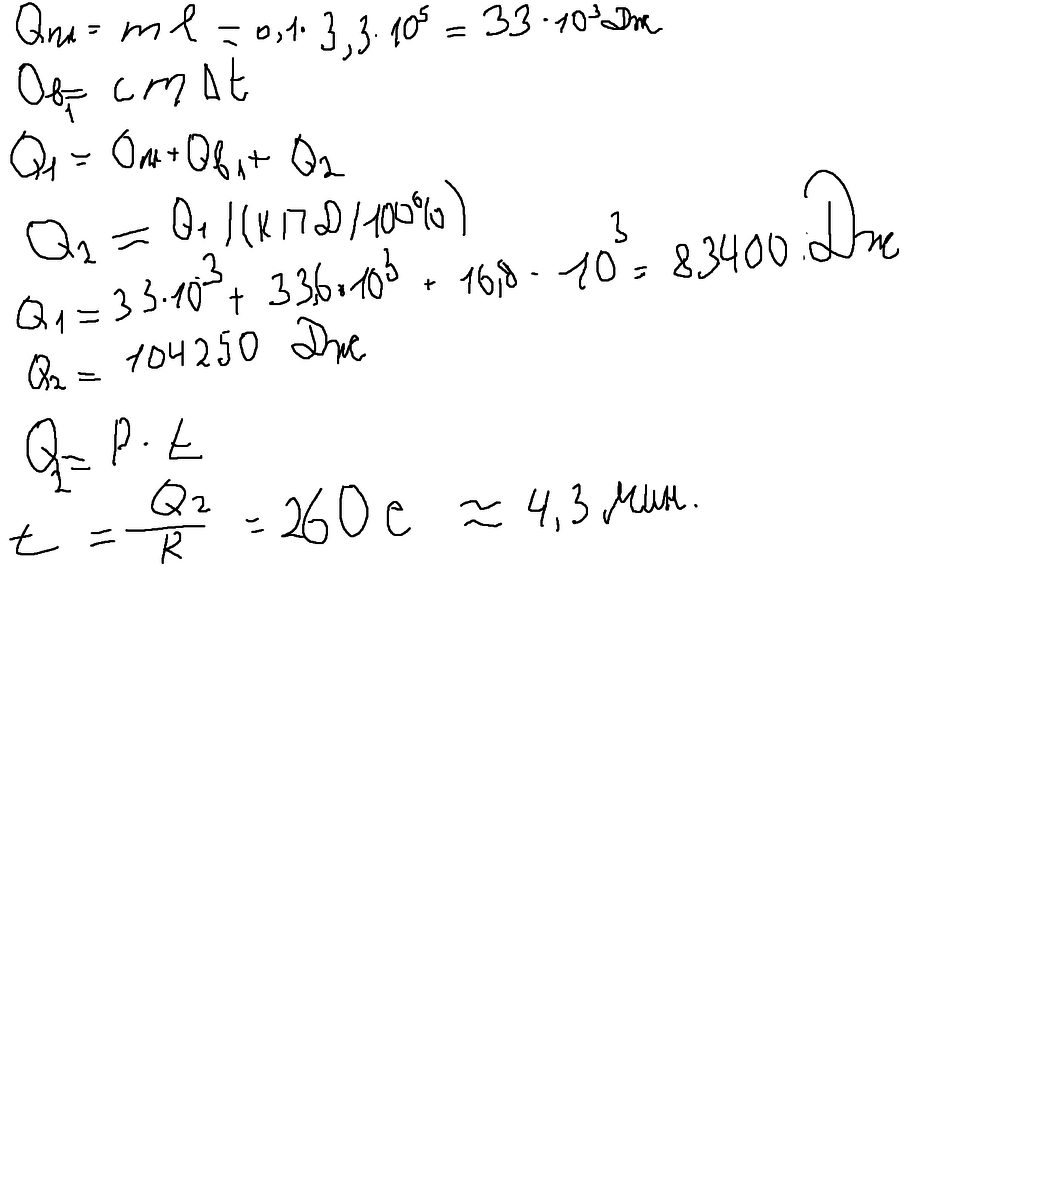 Qпл = mℓ = 0,1 · 3,3 · 10⁵ = 33 · 10³ Дж
Qв₁ = cmΔt
Q₁ = Qпл + Qв₁ + Q₂
Q₂ = Q₁/(КПД/100%)
Q₁ = 33·10³ + 33,6·10³ + 16,8 · 10³ = 83400 Дж
Q₂ = 104250 Дж
Q₂ = P · t
t = Q₂/P = 260 c ≈ 4,3 мин.